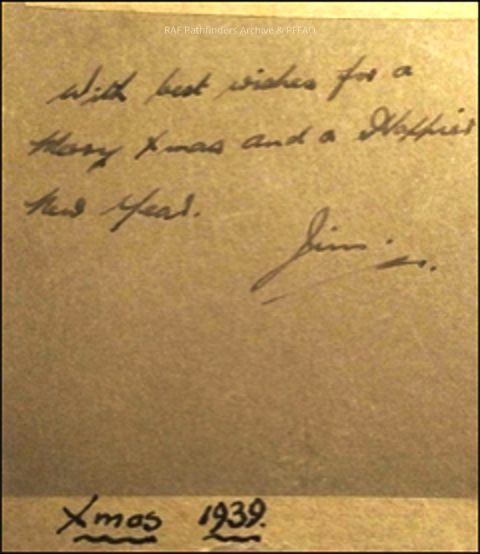 RAF Pathfinders Archive & PFFAO
With best wishes for a
Merry Xmas and a Happier
New Year.
Jim.
Xmas 1939.